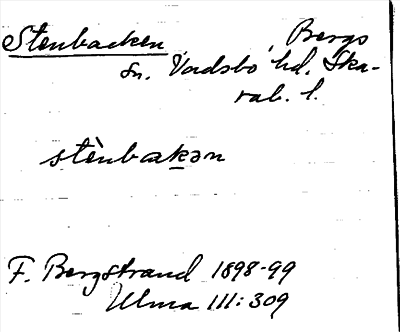 Stenbacken, Bergs
sn. Vadsbo hd. Ska-
rab. l.
stènbakən
F. Bergstrand 1898-99
Ulma 111:309